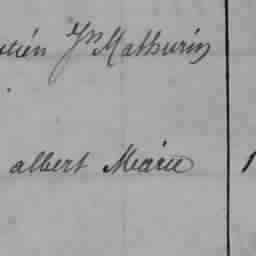 Jn Mathurin
albert Marie